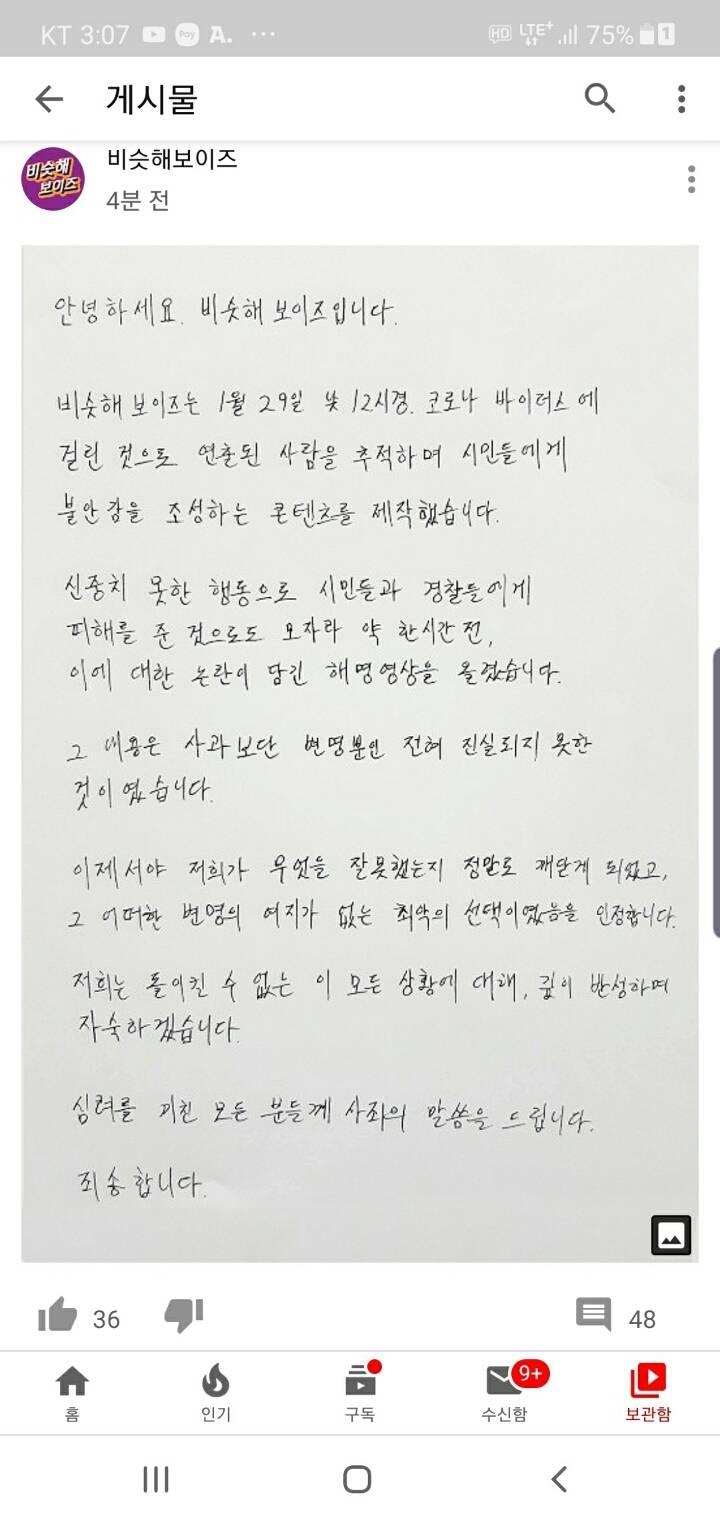 KT 3:07 Pay A. ... HD LTE+ 75% 1
게시물
비슷해보이즈
비슷해
보이즈
4분 전
안녕하세요. 비슷해 보이즈입니다.
비슷해 보이즈는 1월 29일 낮 12시경. 코로나 바이러스에
걸린 것으로 연출된 사람을 추적하며 시민들에게
불안감을 조성하는 콘텐츠를 제작했습니다.
신중치 못한 행동으로 시민들과 경찰들에게
피해를 준 것으로도 모자라 약 한시간 전,
이에 대한 논란이 담긴 해명영상을 올렸습니다.
그 내용은 사과보단 변명뿐인 전혀 진실되지 못한
것이였습니다.
이제서야 저희가 무엇을 잘못했는지 정말로 깨닫게 되었고,
그 어떠한 변명의 여지가 없는 최악의 선택이였음을 인정합니다.
저희는 돌이킬 수 없는 이 모든 상황에 대해, 깊이 반성하며
자숙하겠습니다.
심려를 끼친 모든 분들께 사죄의 말씀을 드립니다.
죄송합니다.
36
48
홈
인기
구독
9+
수신함
보관함